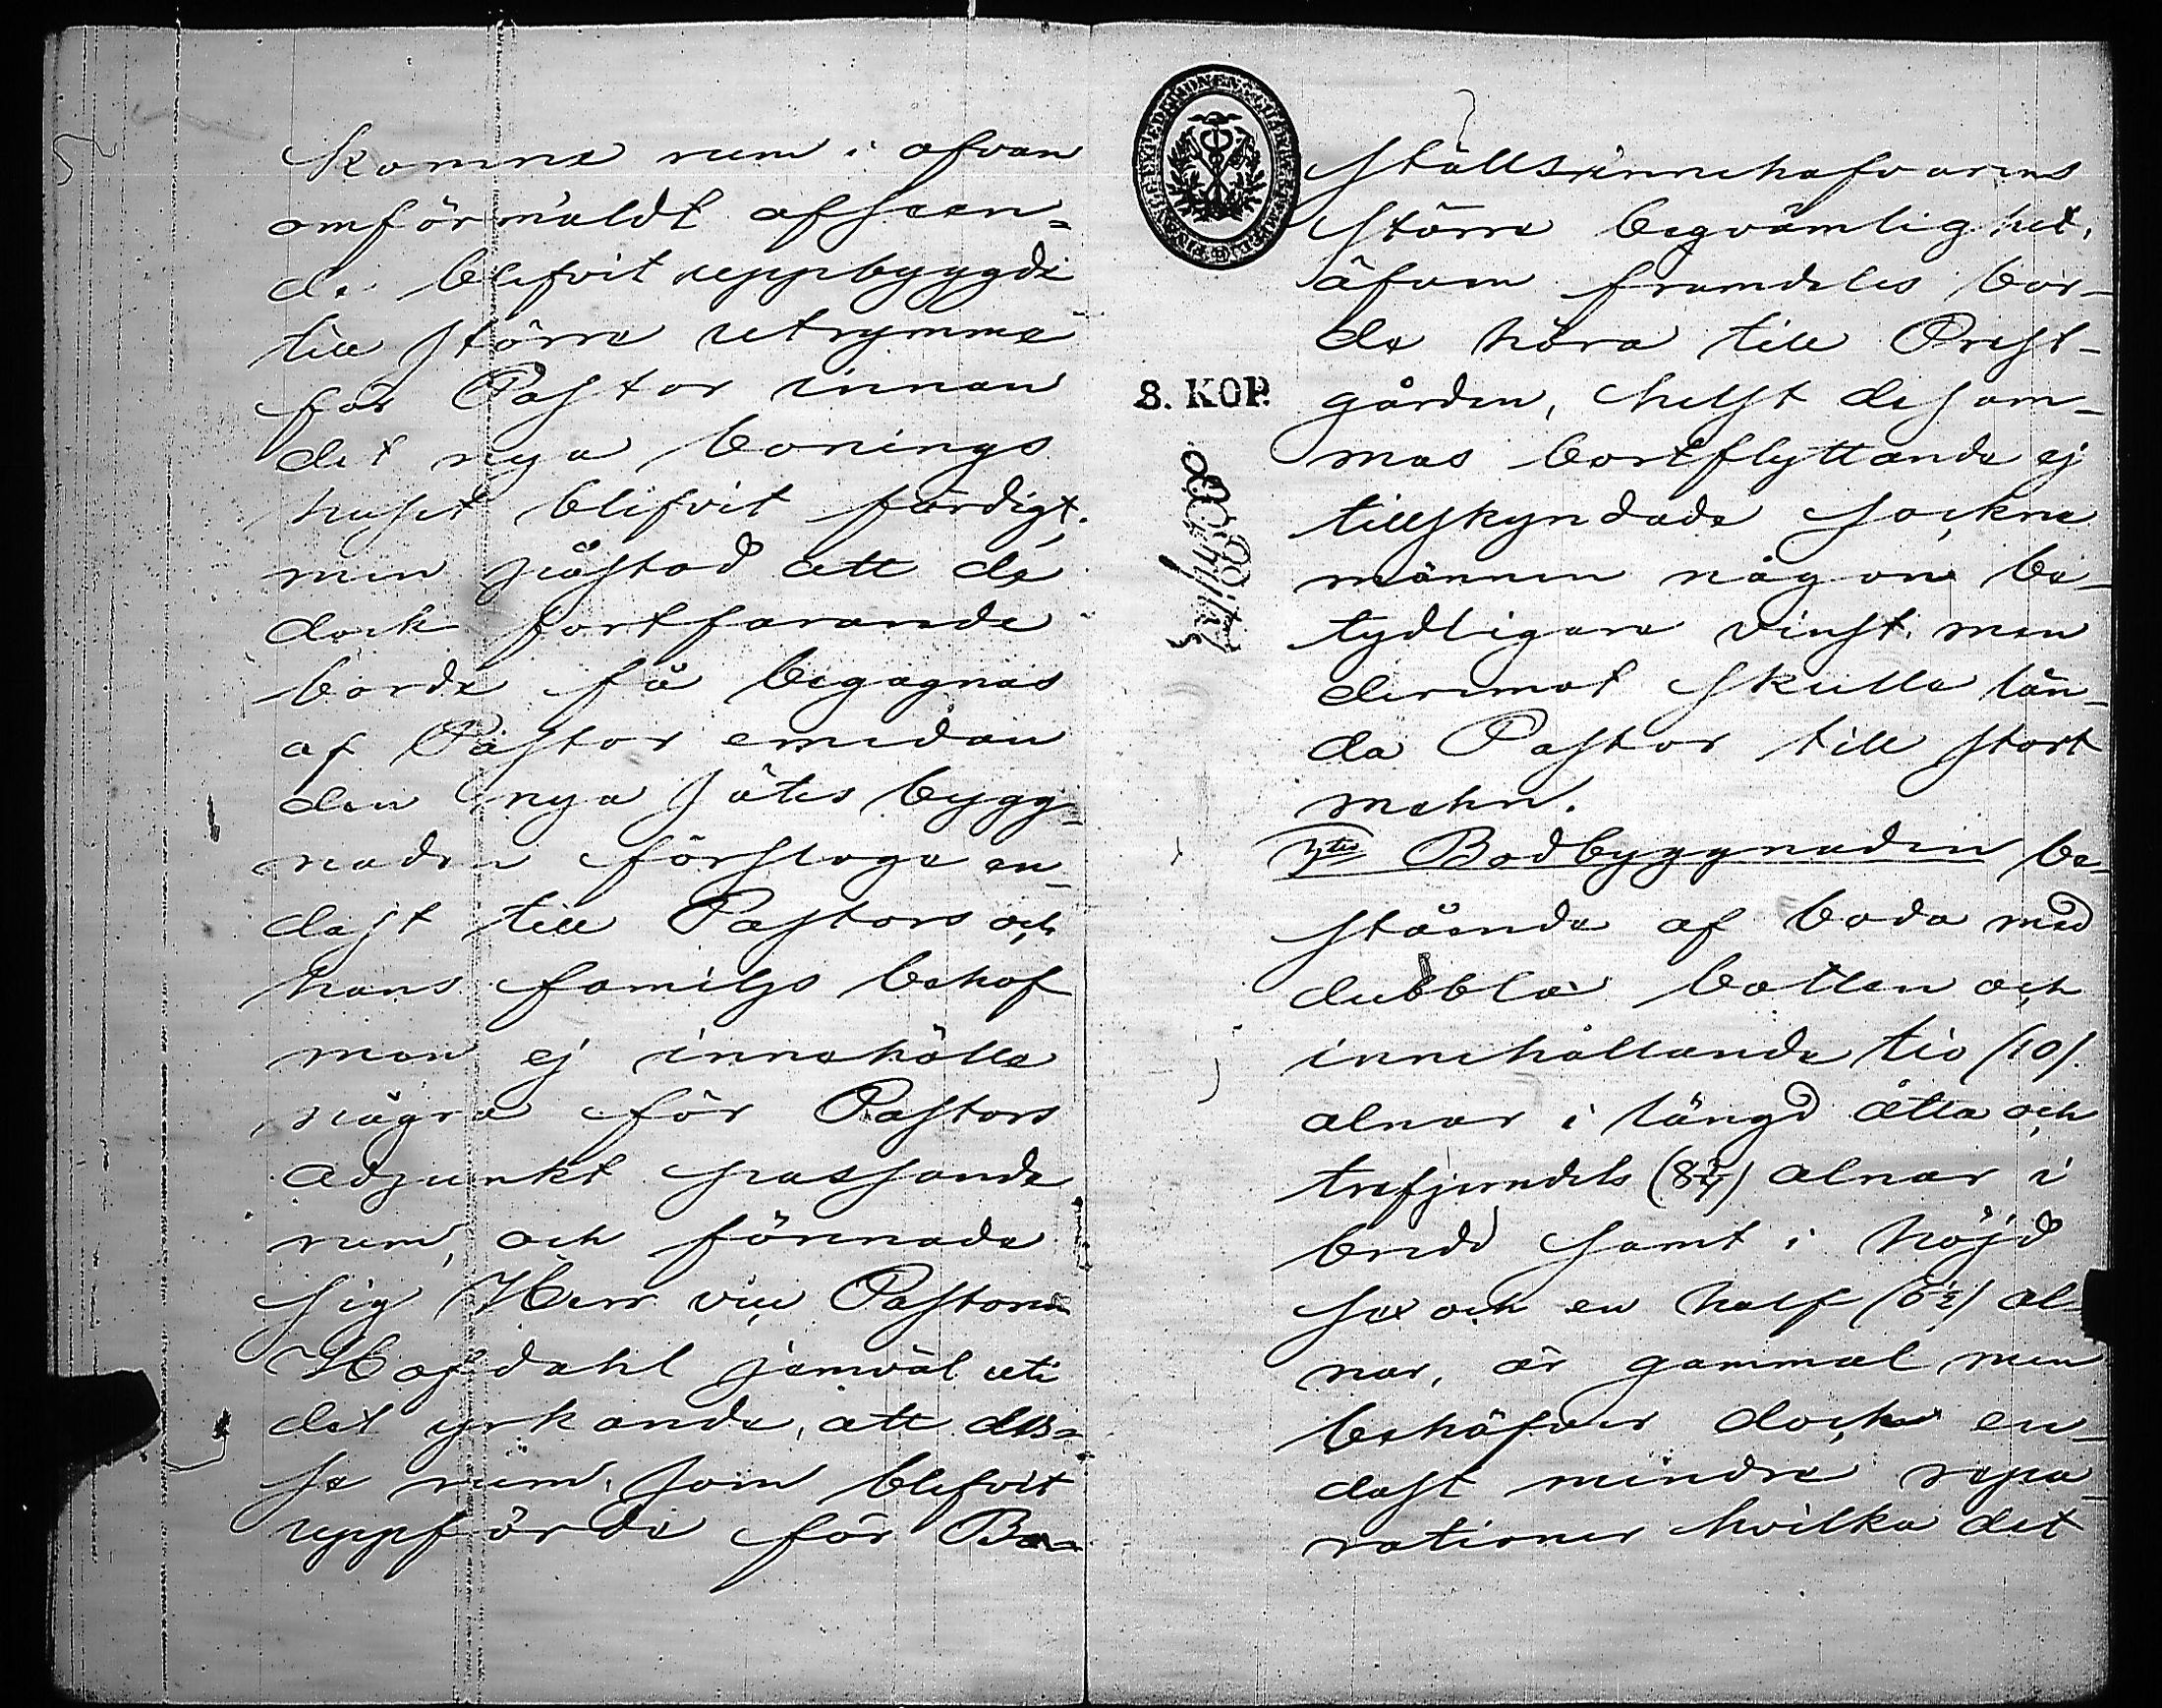 komne rum i ofvan
omförmäldt afseen=
de blifvit uppbyggde
till större utrymme
för Pastor innan
det nya bonings
huset blifvit färdigt,
men påstod att de
dock fortfarande
borde få begagnas
af Pastor emedan
den nya sätes bygg=
naden försloge en=
dast till Pastors och
hans familjs behof
men ej innehölle
några för Pastors
Adjunkt passande
rum, och förenade
sig Herr vice Pastoren
Hofdahl jemväl uti
det yrkande, att des=
se rum, som blifvit
uppförde för Bo=
ställsinnehafvarens
större beqvämlighet,
äfven framdeles bor-
de höra till Prest-
gården, helst desam-
mas bortflyttande ej
tillskyndade sockne
männen någon be-
tydligare vinst, men
deremot skulle län-
da Pastor till stort
mehn.
8. KOP.
7tes Bodbyggnaden be-
stående af boda med
dubbla botten och
innehållande tio (10)
alnar i längd åtta och
trefjerndels (8 3/4) alnar i
bredd samt i höjd
sex och en half (6 1/2) al
nar, är gammal men
behöfver dock en-
dast mindre repa-
rationer hvilka det